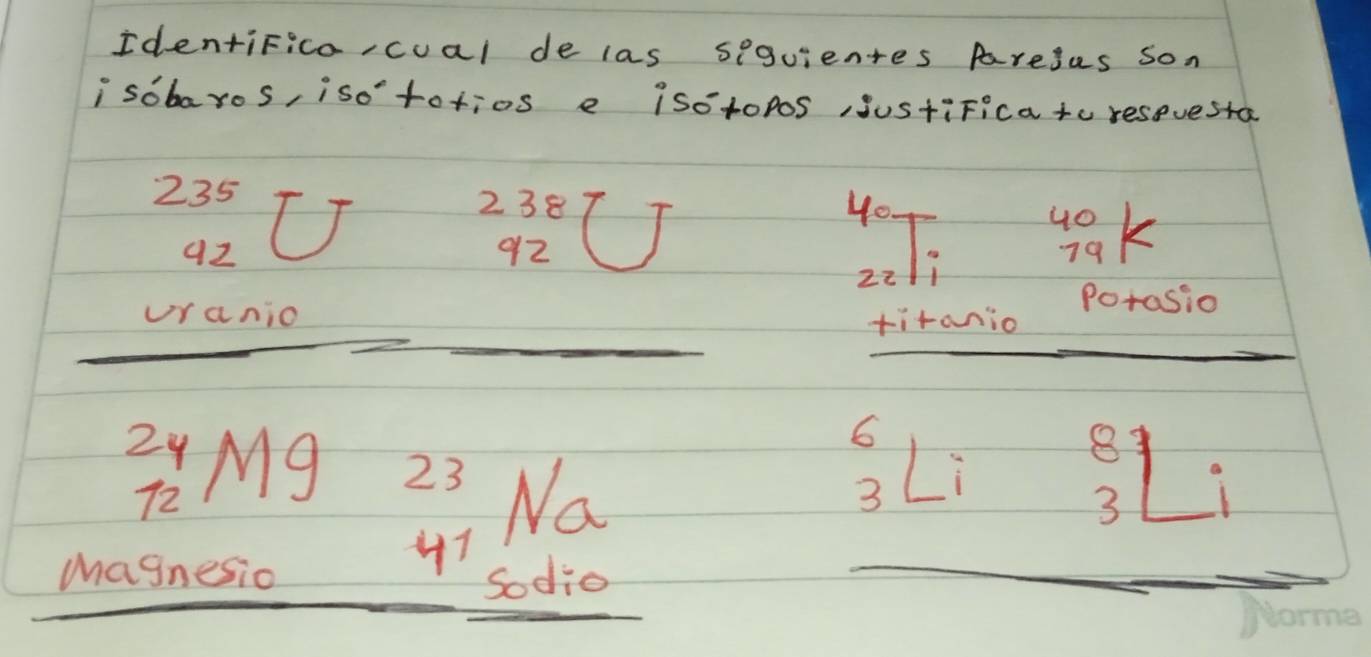 Identifica, cual de las siguientes Parejas son
isóbaros, isótotios e isótopos, justifica tu respuesta
235 92 U 238 92 U 40 22 Ti 40 19 K
uranio titanio Potasio
24 12 Mg 23 41 Na 6 3 Li 8 3 Li
Magnesio Sodio
Norma